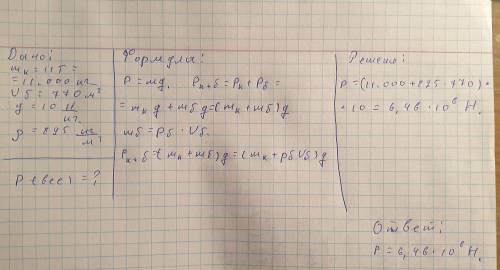 Дано:
mк = 11т =
= 11.000 кг.
Vб = 770 м³
g = 10 Н/кг.
ρ = 825 кг/м³
P (вес) = ?
Формулы:
P = mg. Pк+б = Pк + Pб =
= mк g + mб g = (mк + mб) g
mб = ρб · Vб.
Pк+б = (mк + mб) g = (mк + ρб Vб) g
Решение:
P = (11.000 + 825 · 770) ·
· 10 = 6,46 · 10⁶ Н.
Ответ:
P = 6,46 · 10⁶ Н.